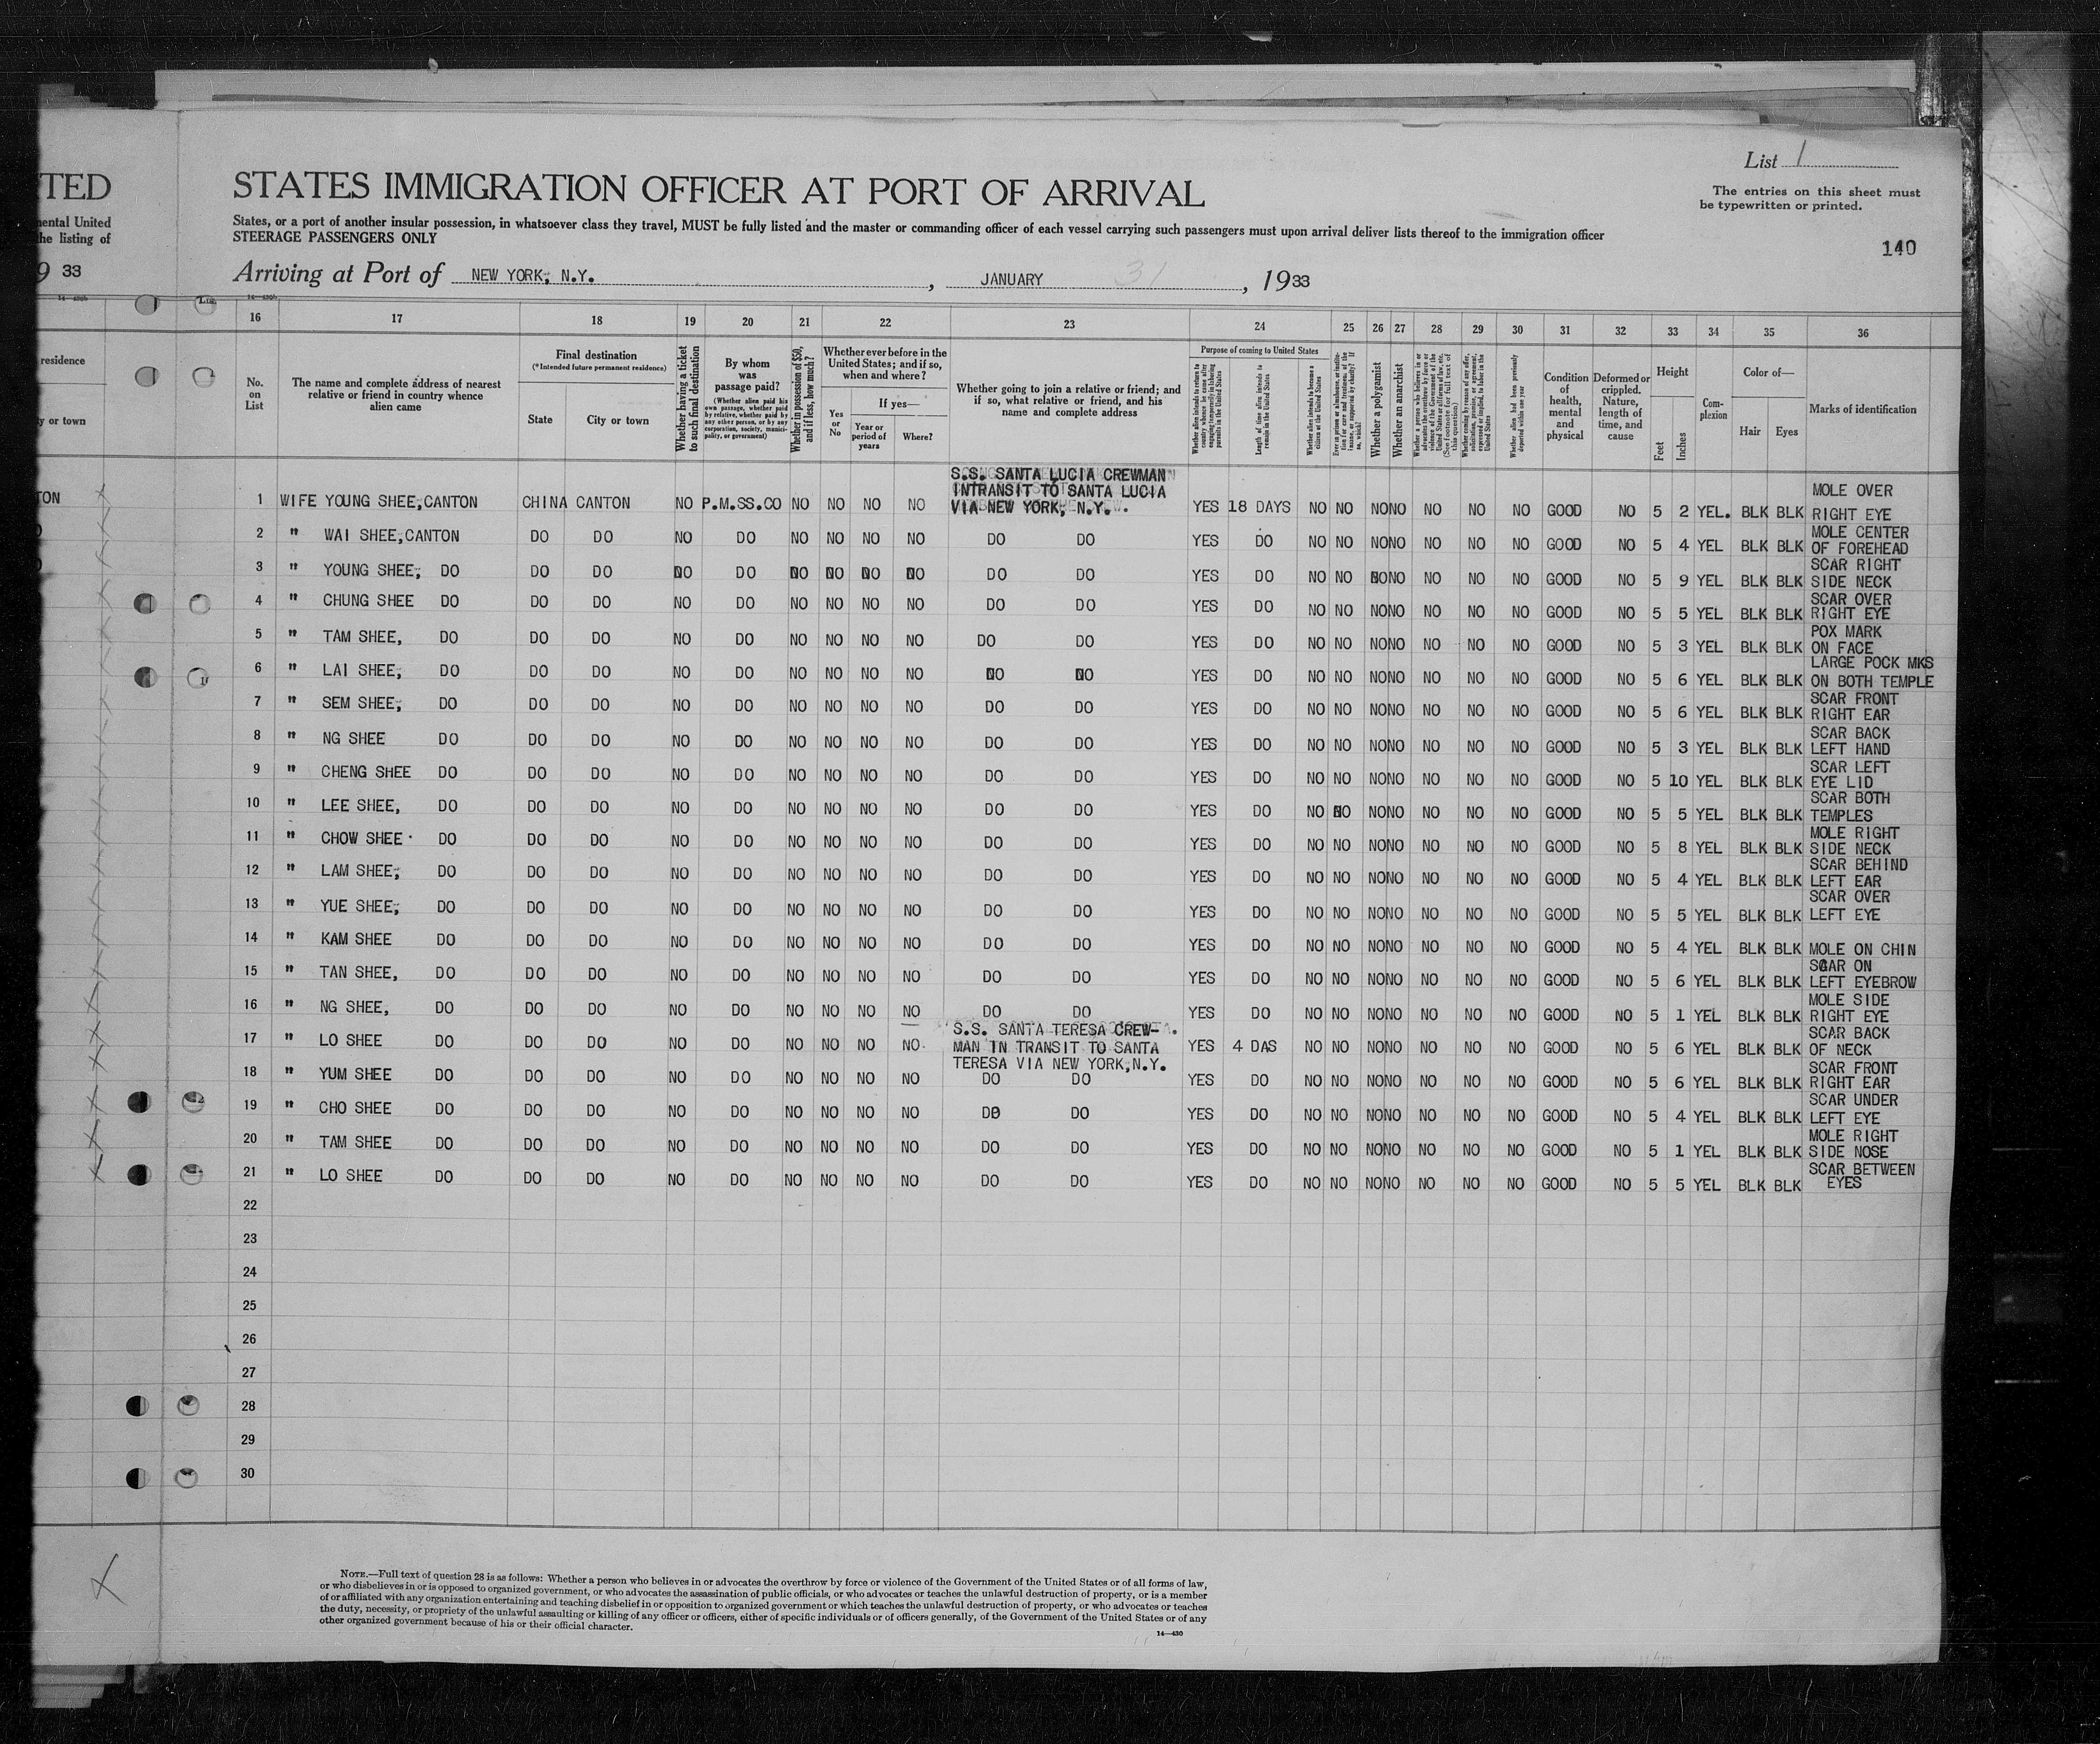 List 1
The entries on this sheet must
be typewritten or printed.
140
TED
STATES IMMIGRATION OFFICER AT PORT OF ARRIVAL
mental United
he listing of
States, or a port of another insular possession, in whatsoever class they travel, MUST be fully listed and the master or commanding officer of each vessel carrying such passengers must upon arrival deliver lists thereof to the immigration officer
STEERAGE PASSENGERS ONLY
9 33
Arriving at Port of NEW YORK, N.Y. , JANUARY 31 , 1933
16 17 18 19 20 21 22 23 24 25 26 27 28 29 30 31 32 33 34 35 36
residence
y or town
No. on List
The name and complete address of nearest relative or friend in country whence alien came
Final destination
(*Intended future permanent residence)
State
City or town
Whether having a ticket to such final destination
By whom was passage paid?
(Whether alien paid his own passage, whether paid by relative, whether paid by any other person, or by any corporation, society, municipality, or government)
Whether in possession of $50, and if less, how much?
Whether ever before in the United States; and if so, when and where?
Yes or No
If yes—
Year or period of years
Where?
Whether going to join a relative or friend; and if so, what relative or friend, and his name and complete address
Purpose of coming to United States
Length of time alien intends to remain in the United States
Whether alien intends to become a citizen of the United States
Whether a polygamist
Whether an anarchist
Whether alien has been previously deported within one year
Condition of health, mental and physical
Deformed or crippled. Nature, length of time, and cause
Height
Feet
Inches
Complexion
Color of—
Hair
Eyes
Marks of identification
TON
S.S. SANTA LUCIA CREWMAN
INTRANSIT TO SANTA LUCIA
VIA NEW YORK, N.Y.
1 WIFE YOUNG SHEE,CANTON CHINA CANTON NO P.M.SS.CO NO NO NO NO YES 18 DAYS NO NO NO NO NO NO NO GOOD NO 5 2 YEL. BLK BLK MOLE OVER RIGHT EYE
2 " WAI SHEE,CANTON DO DO NO DO NO NO NO NO DO DO YES DO NO NO NO NO NO NO NO GOOD NO 5 4 YEL BLK BLK MOLE CENTER OF FOREHEAD
3 " YOUNG SHEE, DO DO DO NO DO NO NO NO NO DO DO YES DO NO NO NO NO NO NO NO GOOD NO 5 9 YEL BLK BLK SCAR RIGHT SIDE NECK
4 " CHUNG SHEE DO DO DO NO DO NO NO NO NO DO DO YES DO NO NO NO NO NO NO NO GOOD NO 5 5 YEL BLK BLK SCAR OVER RIGHT EYE
5 " TAM SHEE, DO DO DO NO DO NO NO NO NO DO DO YES DO NO NO NO NO NO NO NO GOOD NO 5 3 YEL BLK BLK POX MARK ON FACE
6 " LAI SHEE, DO DO DO NO DO NO NO NO NO DO DO YES DO NO NO NO NO NO NO NO GOOD NO 5 6 YEL BLK BLK LARGE POCK MKS ON BOTH TEMPLE
7 " SEM SHEE, DO DO DO NO DO NO NO NO NO DO DO YES DO NO NO NO NO NO NO NO GOOD NO 5 6 YEL BLK BLK SCAR FRONT RIGHT EAR
8 " NG SHEE DO DO DO NO DO NO NO NO NO DO DO YES DO NO NO NO NO NO NO NO GOOD NO 5 3 YEL BLK BLK SCAR BACK LEFT HAND
9 " CHENG SHEE DO DO DO NO DO NO NO NO NO DO DO YES DO NO NO NO NO NO NO NO GOOD NO 5 10 YEL BLK BLK SCAR LEFT EYE LID
10 " LEE SHEE, DO DO DO NO DO NO NO NO NO DO DO YES DO NO NO NO NO NO NO NO GOOD NO 5 5 YEL BLK BLK SCAR BOTH TEMPLES
11 " CHOW SHEE DO DO DO NO DO NO NO NO NO DO DO YES DO NO NO NO NO NO NO NO GOOD NO 5 8 YEL BLK BLK MOLE RIGHT SIDE NECK
12 " LAM SHEE, DO DO DO NO DO NO NO NO NO DO DO YES DO NO NO NO NO NO NO NO GOOD NO 5 4 YEL BLK BLK SCAR BEHIND LEFT EAR
13 " YUE SHEE, DO DO DO NO DO NO NO NO NO DO DO YES DO NO NO NO NO NO NO NO GOOD NO 5 5 YEL BLK BLK SCAR OVER LEFT EYE
14 " KAM SHEE DO DO DO NO DO NO NO NO NO DO DO YES DO NO NO NO NO NO NO NO GOOD NO 5 4 YEL BLK BLK MOLE ON CHIN
15 " TAN SHEE, DO DO DO NO DO NO NO NO NO DO DO YES DO NO NO NO NO NO NO NO GOOD NO 5 6 YEL BLK BLK SCAR ON LEFT EYEBROW
16 " NG SHEE, DO DO DO NO DO NO NO NO NO DO DO YES DO NO NO NO NO NO NO NO GOOD NO 5 1 YEL BLK BLK MOLE SIDE RIGHT EYE
S.S. SANTA TERESA CREW-
MAN IN TRANSIT TO SANTA
TERESA VIA NEW YORK,N.Y.
17 " LO SHEE DO DO DO NO DO NO NO NO NO YES 4 DAS NO NO NO NO NO NO NO GOOD NO 5 6 YEL BLK BLK SCAR BACK OF NECK
18 " YUM SHEE DO DO DO NO DO NO NO NO NO DO DO YES DO NO NO NO NO NO NO NO GOOD NO 5 6 YEL BLK BLK SCAR FRONT RIGHT EAR
19 " CHO SHEE DO DO DO NO DO NO NO NO NO DO DO YES DO NO NO NO NO NO NO NO GOOD NO 5 4 YEL BLK BLK SCAR UNDER LEFT EYE
20 " TAM SHEE DO DO DO NO DO NO NO NO NO DO DO YES DO NO NO NO NO NO NO NO GOOD NO 5 1 YEL BLK BLK MOLE RIGHT SIDE NOSE
21 " LO SHEE DO DO DO NO DO NO NO NO NO DO DO YES DO NO NO NO NO NO NO NO GOOD NO 5 5 YEL BLK BLK SCAR BETWEEN EYES
22
23
24
25
26
27
28
29
30
NOTE.—Full text of question 28 is as follows: Whether a person who believes in or advocates the overthrow by force or violence of the Government of the United States or of all forms of law,
or who disbelieves in or is opposed to organized government, or who advocates the assassination of public officials, or who advocates or teaches the unlawful destruction of property, or is a member
of or affiliated with any organization entertaining and teaching disbelief in or opposition to organized government or which teaches the unlawful destruction of property, or who advocates or teaches
the duty, necessity, or propriety of the unlawful assaulting or killing of any officer or officers, either of specific individuals or of officers generally, of the Government of the United States or of any
other organized government because of his or their official character.
14—430